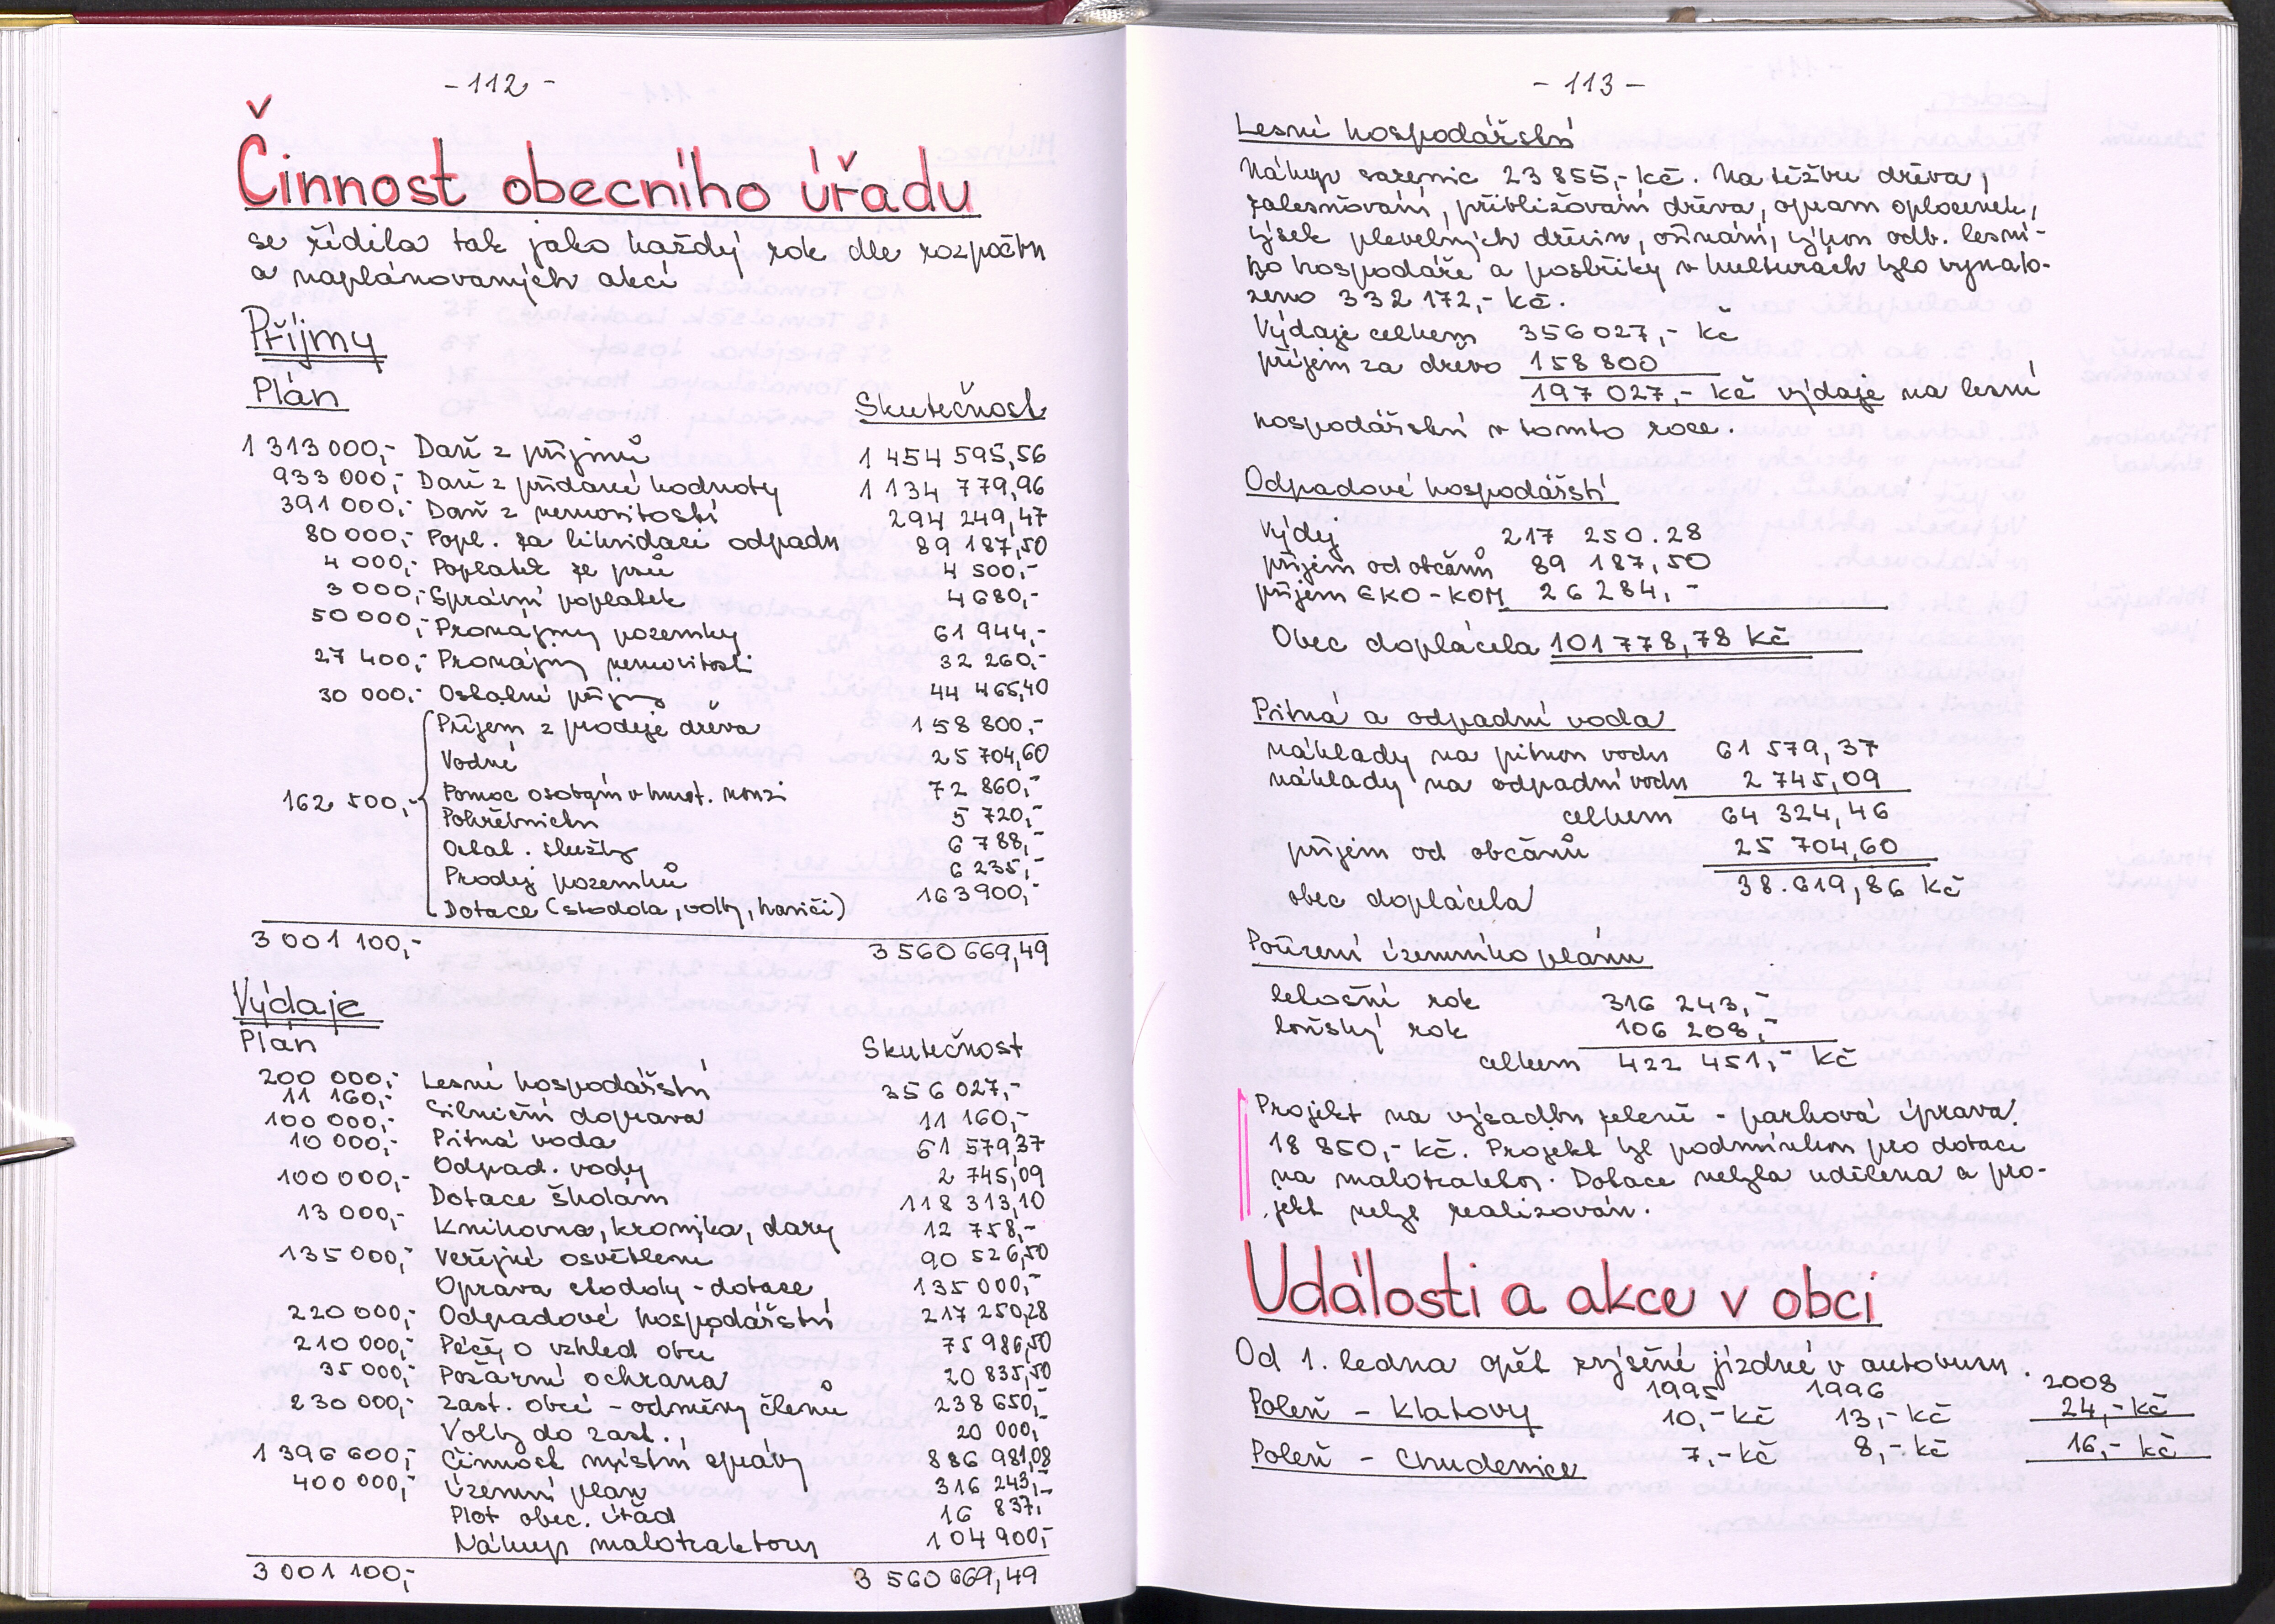 - 112 -
Činnost obecního úřadu
se řídila tak jako každý rok dle rozpočtu
a naplánovaných akcí
Příjmy
Plán Skutečnost
1 313 000,- Daň z příjmů 1 454 595,56
933 000,- Daň z přidané hodnoty 1 134 779,96
391 000,- Daň z nemovitostí 294 249,47
80 000,- Popl. za likvidaci odpadu 89 187,50
4 000,- Poplatek ze psů 4 500,-
3 000,- Správní poplatek 4 680,-
50 000,- Pronájmy pozemky 61 944,-
27 400,- Pronájmy nemovitosti 32 260,-
30 000,- Ostatní příjmy 44 465,40
Příjem z prodeje dřeva 158 800,-
Vodné 25 704,60
162 500,- Pomoc osobám v hmot. nouzi 72 860,-
Pohřebnictví 5 720,-
Ostat. služby 6 788,-
Prodej pozemků 6 235,-
Dotace (stodola, volby, hasiči) 163 900,-
3 001 100,- 3 560 669,49
Výdaje
Plán Skutečnost
200 000,- Lesní hospodářství 356 027,-
11 160,- Silniční doprava 11 160,-
100 000,- Pitná voda 61 579,37
10 000,- Odpad. vody 2 745,09
100 000,- Dotace školám 118 313,10
13 000,- Knihovna, kronika, dary 12 758,-
135 000,- Veřejné osvětlení 90 526,50
Oprava stodoly - dotace 135 000,-
220 000,- Odpadové hospodářství 217 250,28
210 000,- Péče o vzhled obce 75 986,50
35 000,- Požární ochrana 20 835,50
230 000,- Zast. obcí - odměny členů 238 650,-
Volby do zast. 20 000,-
1 396 600,- Činnost místní správy 886 981,08
400 000,- Územní plán 316 243,-
Plot obec. úřad 16 837,-
Nákup malotraktoru 104 900,-
3 001 100,- 3 560 669,49
- 113 -
Lesní hospodářství
Nákup sazenic 23 855,- Kč. Na těžbu dřeva,
zalesňování, přibližování dřeva, opravu oplocenek,
výsek plevelných dřevin, ožínání, výkon odb. lesní-
ho hospodáře a postřiky v kulturách bylo vynalo-
ženo 332 172,- Kč.
Výdaje celkem 356 027,- Kč
příjem za dřevo 158 800
197 027,- Kč výdaje na lesní
hospodářství v tomto roce.
Odpadové hospodářství
Výdej 217 250.28
příjem od občanů 89 187,50
příjem EKO-KOM 26 284,-
Obec doplácela 101 778,78 Kč
Pitná a odpadní voda
náklady na pitnou vodu 61 579,37
náklady na odpadní vodu 2 745,09
celkem 64 324,46
příjem od občanů 25 704,60
obec doplácela 38.619,86 Kč
Pořízení územního plánu
letošní rok 316 243,-
loňský rok 106 208,-
celkem 422 451,- Kč
Projekt na výsadbu zeleně - parková úprava
18 850,- Kč. Projekt byl podmínkou pro dotaci
na malotraktor. Dotace nebyla udělena a pro-
jekt nebyl realizován.
Události a akce v obci
Od 1. ledna opět zvýšené jízdné v autobusu.
1995 1996 2008
Poleň - Klatovy 10,- Kč 13,- Kč 24,- Kč
Poleň - Chudenice 7,- Kč 8,- Kč 16,- Kč